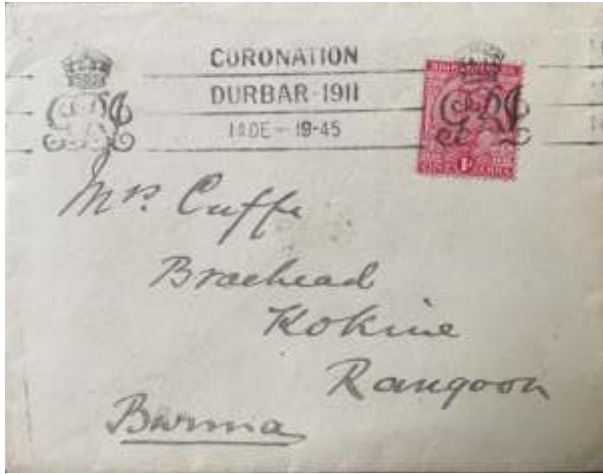 CORONATION
DURBAR-1911
DE-19-45
Mrs Cuffe
Braehead
Kokine
Rangoon
Burma